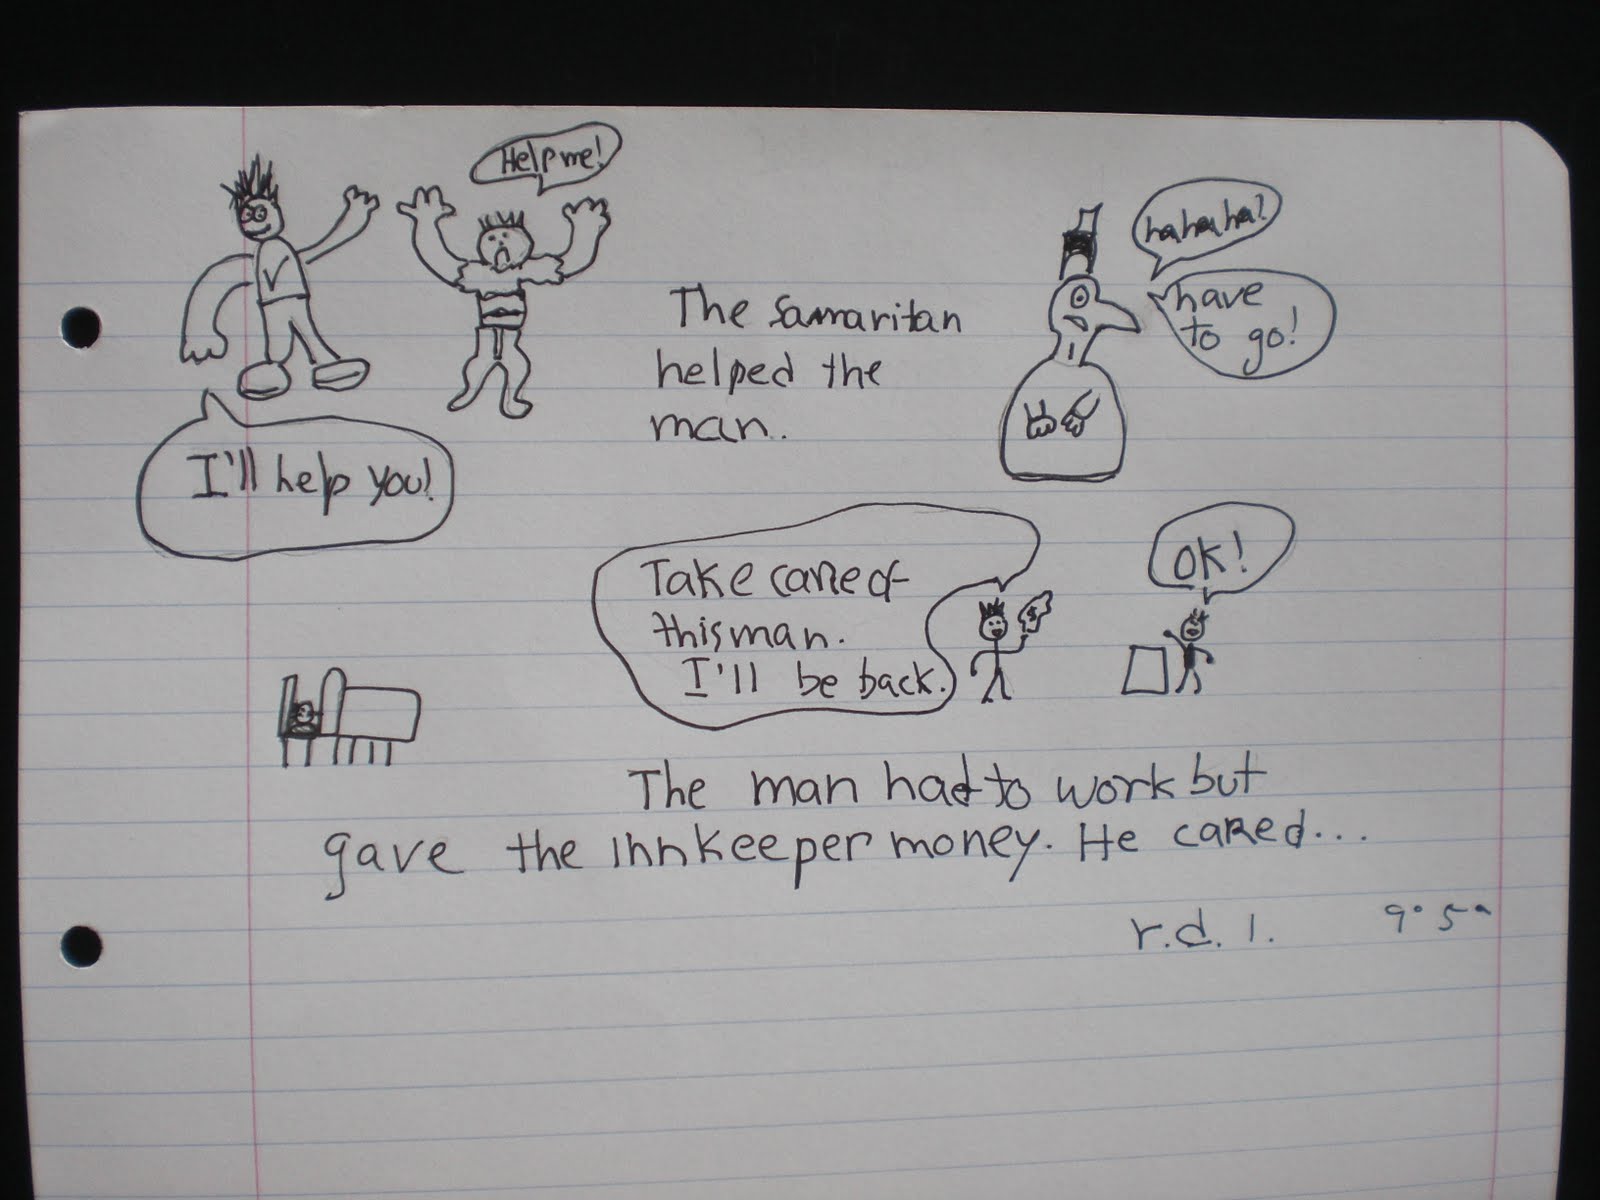 Help me!
I'll help you!
The Samaritan
helped the
man.
hahaha!
have
to go!
Take care of
this man.
I'll be back.
OK!
The man had to work but
gave the innkeeper money. He cared...
r.d. 1.